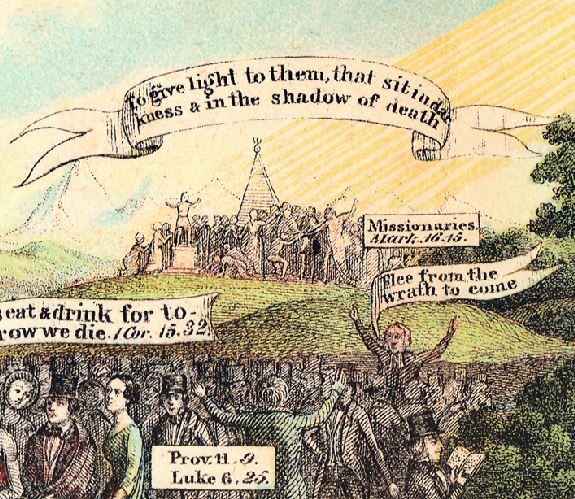 to give light to them, that sit in dar
kness & in the shadow of death
Missionaries
Mark. 16. 15.
Flee from the
wrath to come
eat & drink for to-
row we die. 1 Cor. 15. 32.
Prov. 11. 9.
Luke 6. 25.